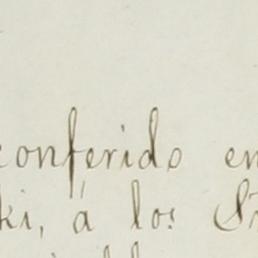 conferido en
ki, á los